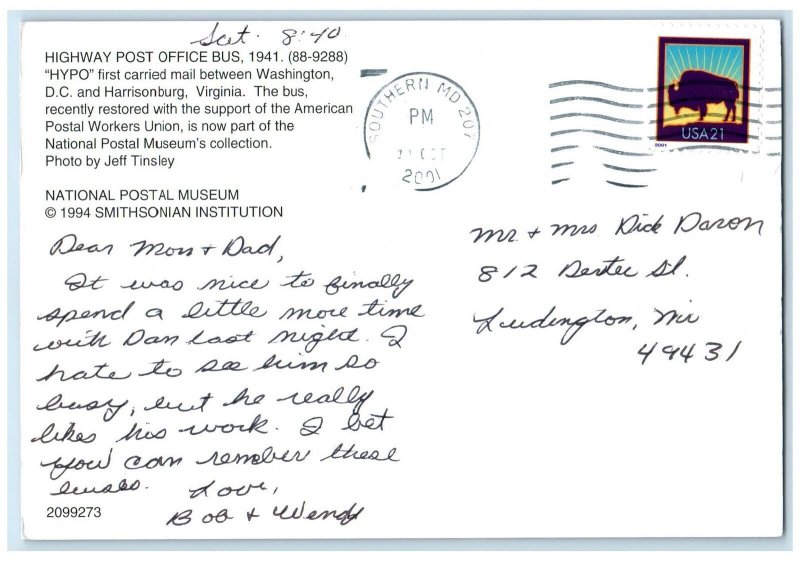 Sat. 8:40
HIGHWAY POST OFFICE BUS, 1941. (88-9288)
"HYPO" first carried mail between Washington,
D.C. and Harrisonburg, Virginia. The bus,
recently restored with the support of the American
Postal Workers Union, is now part of the
National Postal Museum's collection.
Photo by Jeff Tinsley
NATIONAL POSTAL MUSEUM
© 1994 SMITHSONIAN INSTITUTION
Dear Mom + Dad,
It was nice to finally
spend a little more time
with Dan last night. I
hate to see him so
busy, but he really
likes his work. I bet
you can remember these
buses.
Love,
Bob & Wendy
2099273
SOUTHERN MD 207
PM
OCT
2001
USA21
2001
Mr. + Mrs Dick
812 St.
Ludington, Mi
49431